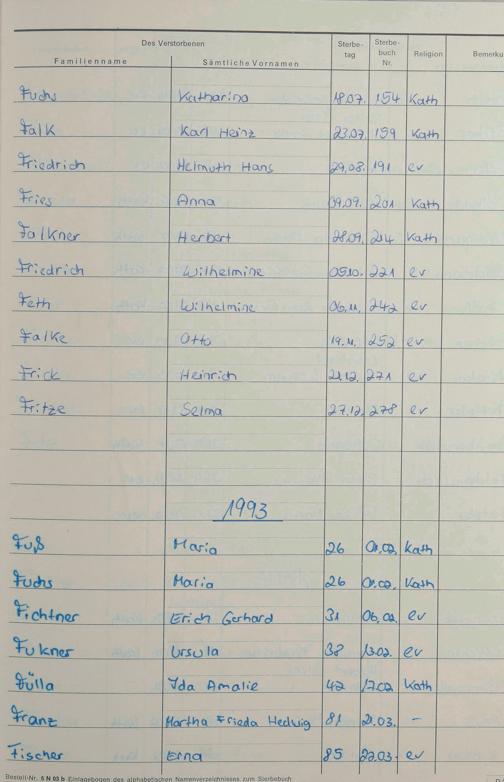 Des Verstorbenen Sterbe- Sterbe- Religion Bemerku
Familienname Sämtliche Vornamen tag buch Nr.
Fuchs Katharina 18.07. 154 Kath
Falk Karl Heinz 23.07. 159 Kath
Friedrich Helmuth Hans 29.08. 191 ev
Fries Anna 09.09. 201 Kath
Falkner Herbert 28.09. 214 Kath
Friedrich Wilhelmine 05.10. 221 ev
Feth Wilhelmine 06.11. 242 ev
Falke Otto 19.11. 252 ev
Frick Heinrich 21.12. 271 ev
Fritze Selma 27.12. 278 ev
1993
Fuß Maria 26 Kath
Fuchs Maria 26 Kath
Fichtner Erich Gerhard 31 06.02. ev
Fukner Ursula 38 13.02. ev
Fülla Ida Amalie 42 17.02 Kath
Franz Martha Frieda Hedwig 81 21.03. -
Fischer Erna 85 22.03. ev
Bestell-Nr. 5 N 03 b Einlagebogen des alphabetischen Namenverzeichnisses zum Sterbebuch